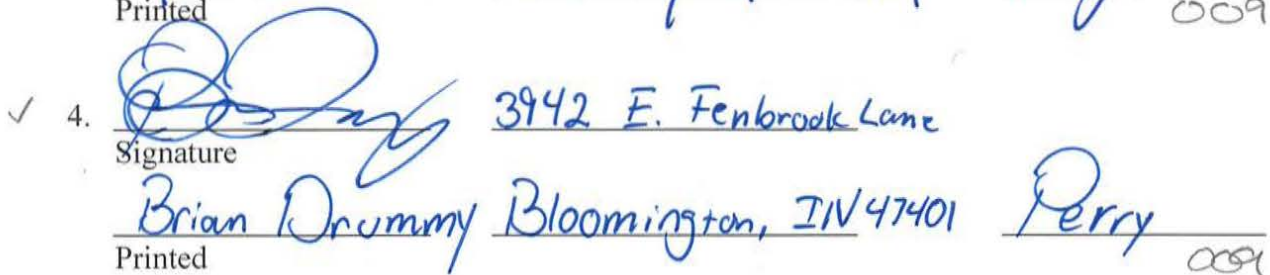 Printed
009
✓ 4. 3942 E. Fenbrook Lane
Signature
Brian Drummy Bloomington, IN 47401 Perry
Printed
009